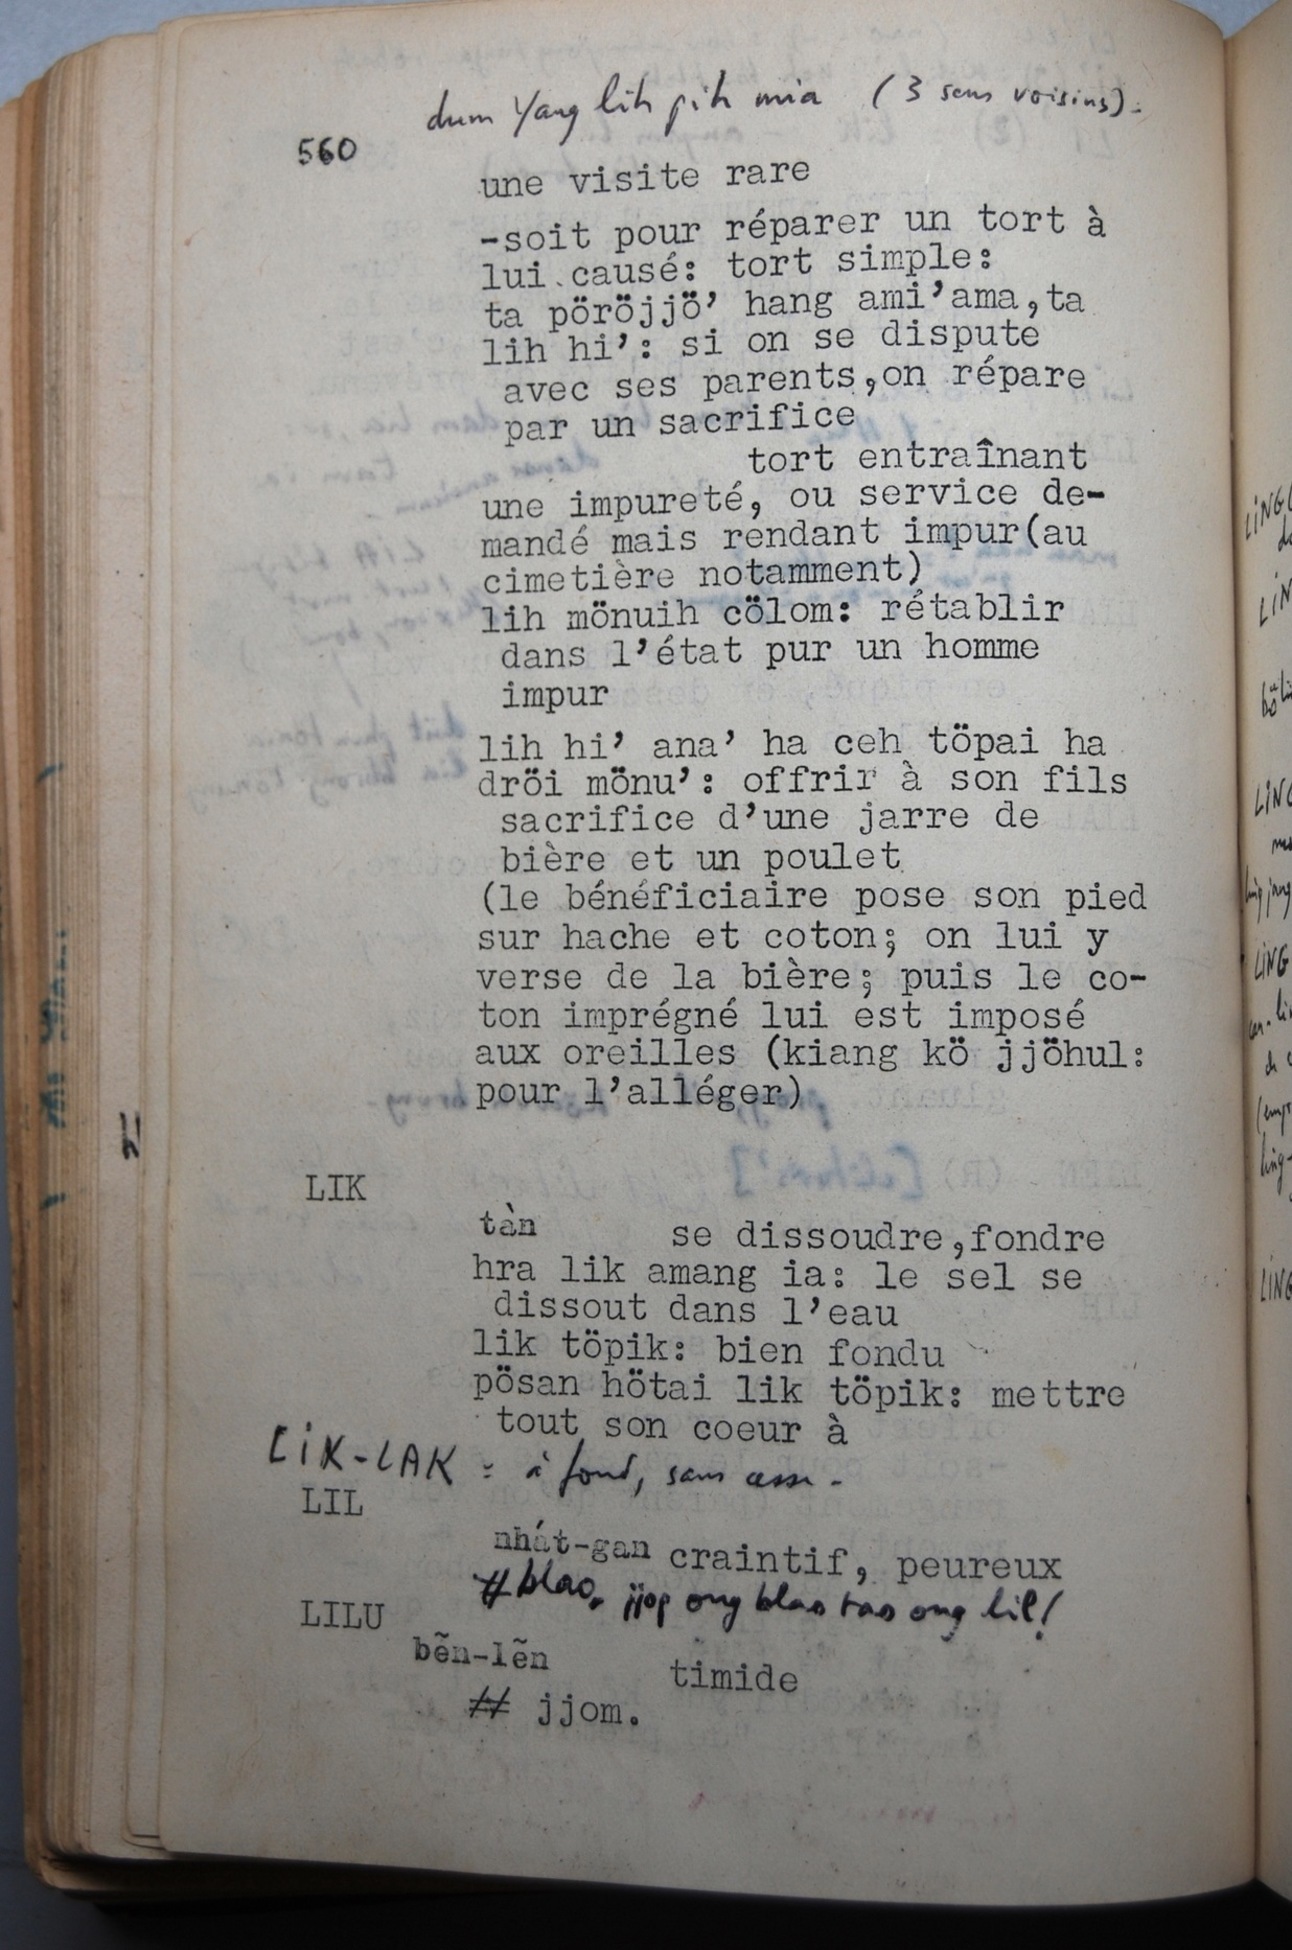 dum Yang lih pih mia (3 sens voisins).
560
une visite rare
-soit pour réparer un tort à
lui causé: tort simple:
ta pöröjjö' hang ami'ama,ta
lih hi': si on se dispute
avec ses parents,on répare
par un sacrifice
tort entraînant
une impureté, ou service de-
mandé mais rendant impur(au
cimetière notamment)
lih mönuih cölom: rétablir
dans l'état pur un homme
impur
lih hi' ana' ha ceh töpai ha
dröi mönu': offrir à son fils
sacrifice d'une jarre de
bière et un poulet
(le bénéficiaire pose son pied
sur hache et coton; on lui y
verse de la bière; puis le co-
ton imprégné lui est imposé
aux oreilles (kiang kö jjöhul:
pour l'alléger)
LIK
tàn se dissoudre,fondre
hra lik amang ia: le sel se
dissout dans l'eau
lik töpik: bien fondu
pösan hötai lik töpik: mettre
tout son coeur à
LIK-LAK = à fond, sans cesse.
LIL
nhát-gan craintif, peureux
# blao. jjop ong blao tao ong lil!
LILU
bẽn-lẽn timide
# jjom.